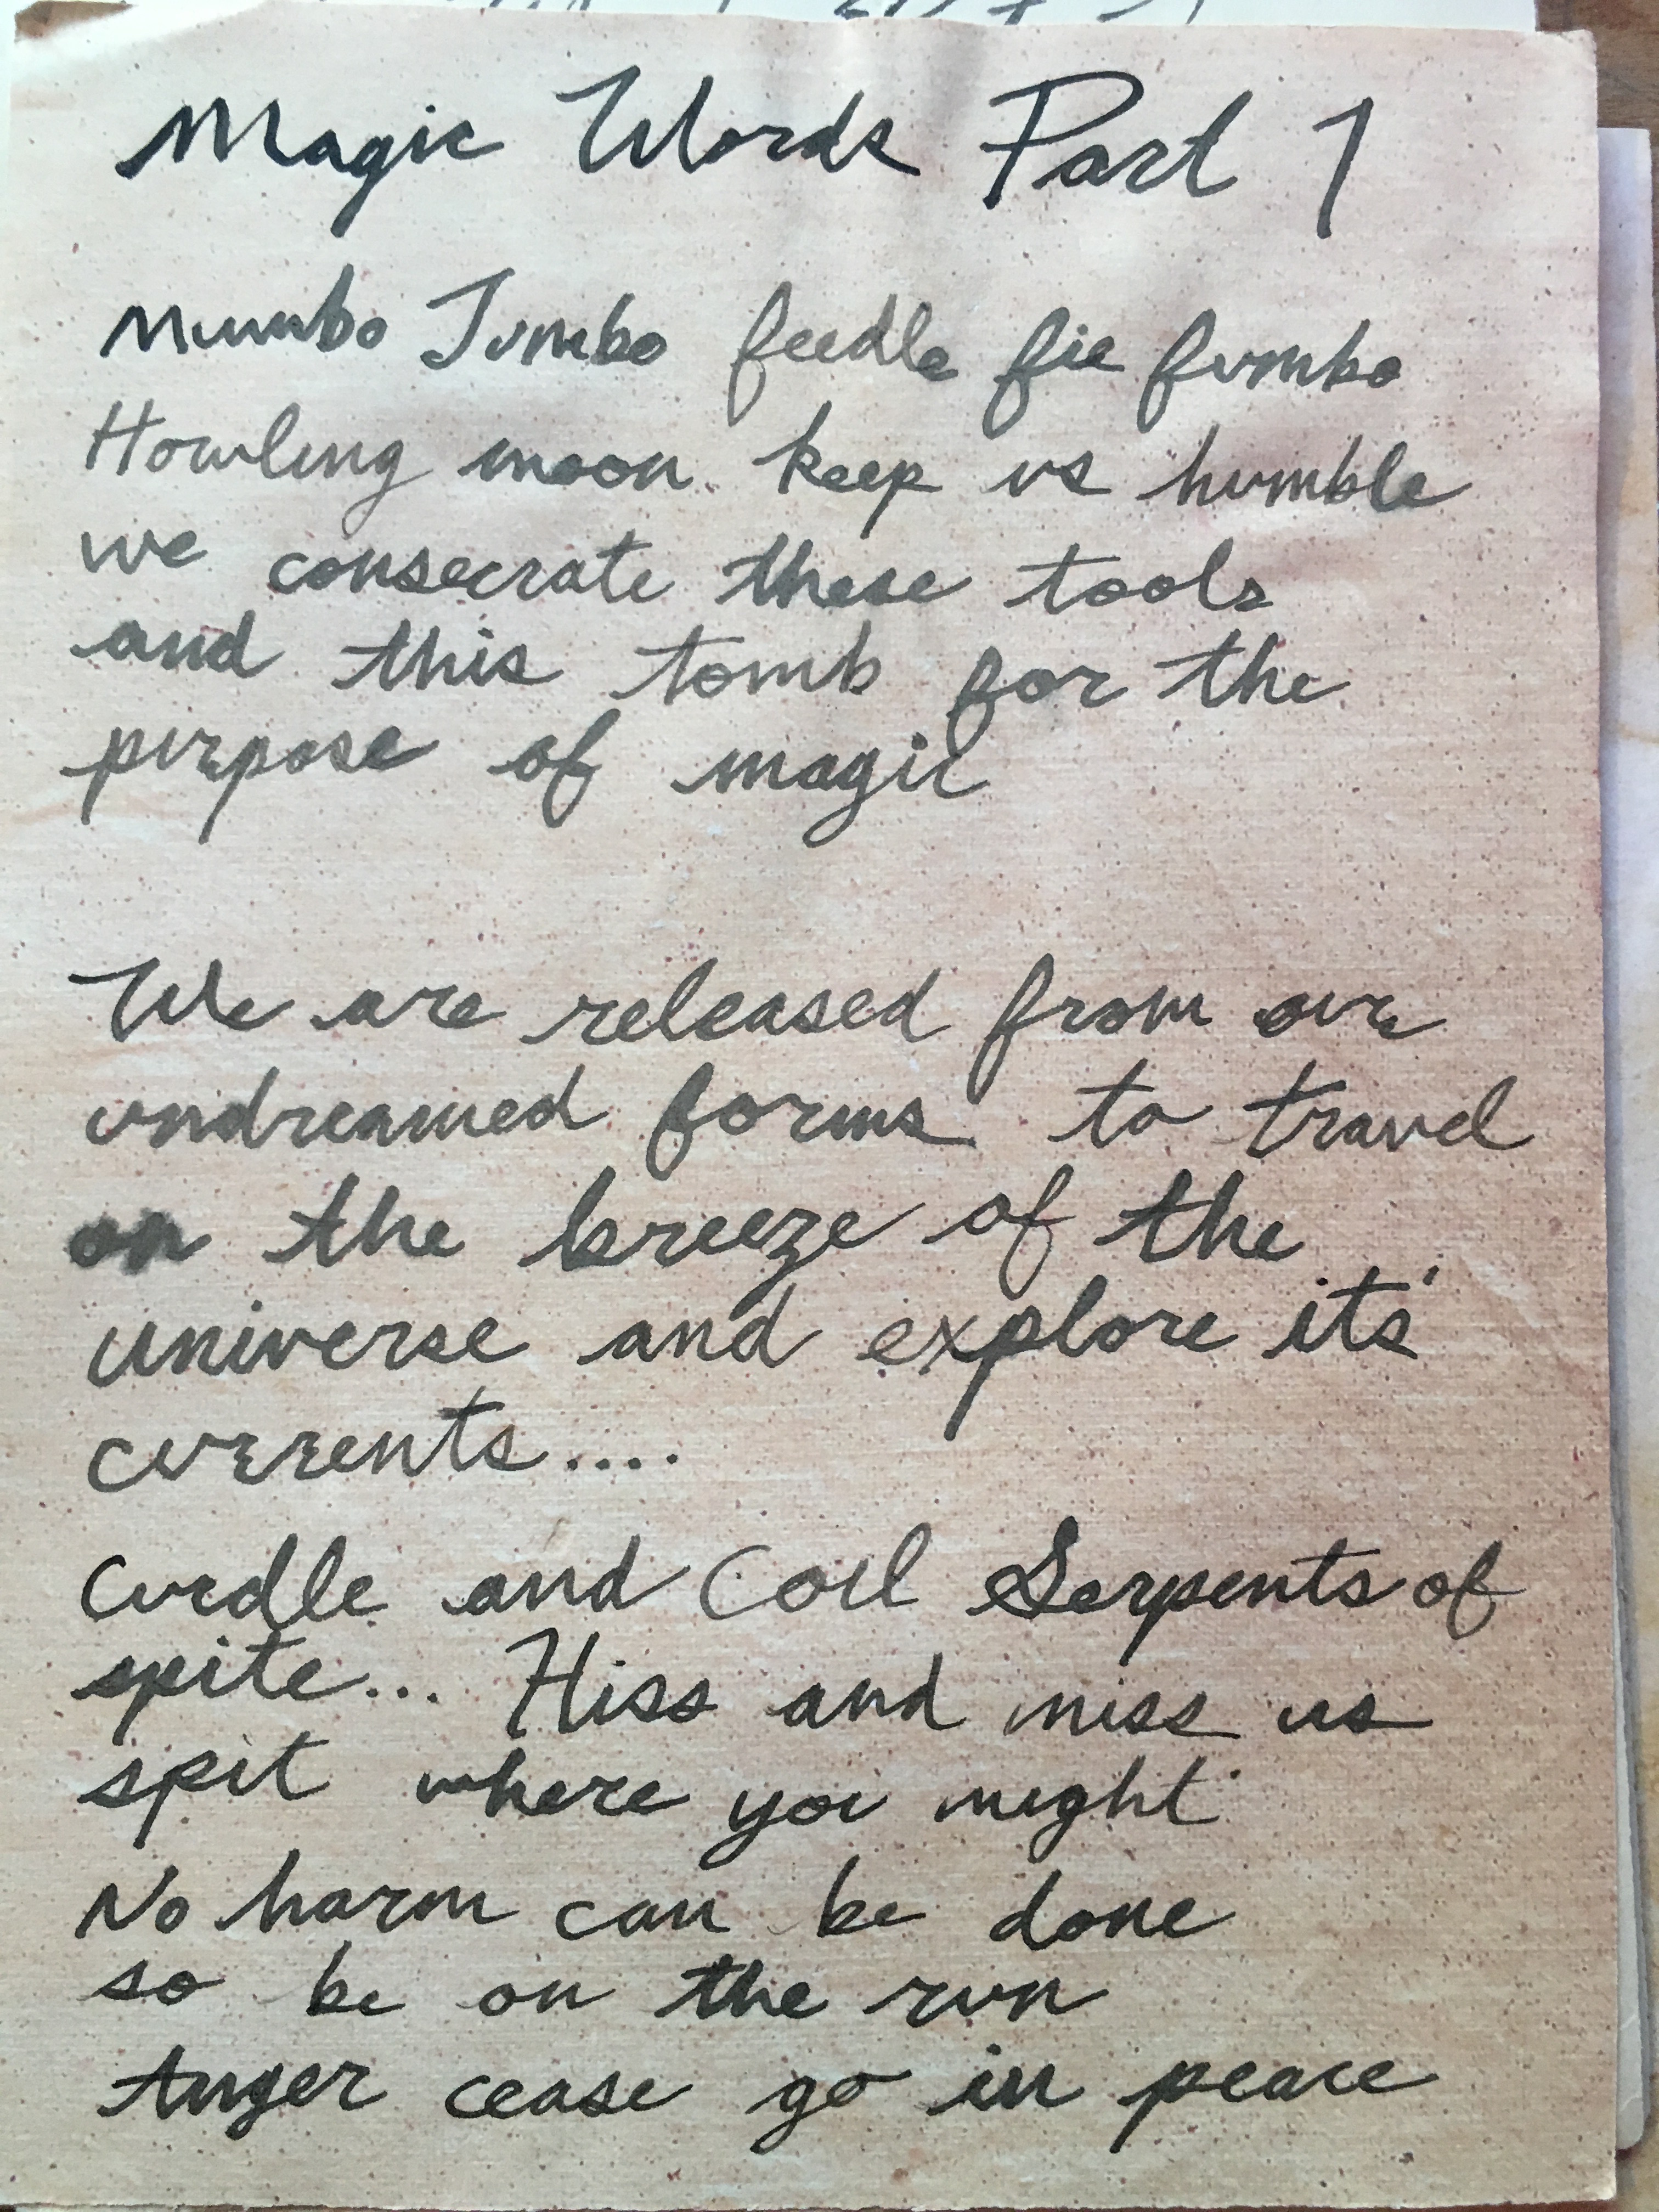 Magic Words Part 1
Mumbo Jumbo feedle fie fumbo
Howling moon keep us humble
we consecrate these tools
and this tomb for the
purpose of magic
We are released from our
undreamed forms to travel
on the breeze of the
universe and explore its'
currents....
Curdle and Coil Serpents of
spite... Hiss and miss us
spit where you might
No harm can be done
so be on the run
Anger cease go in peace